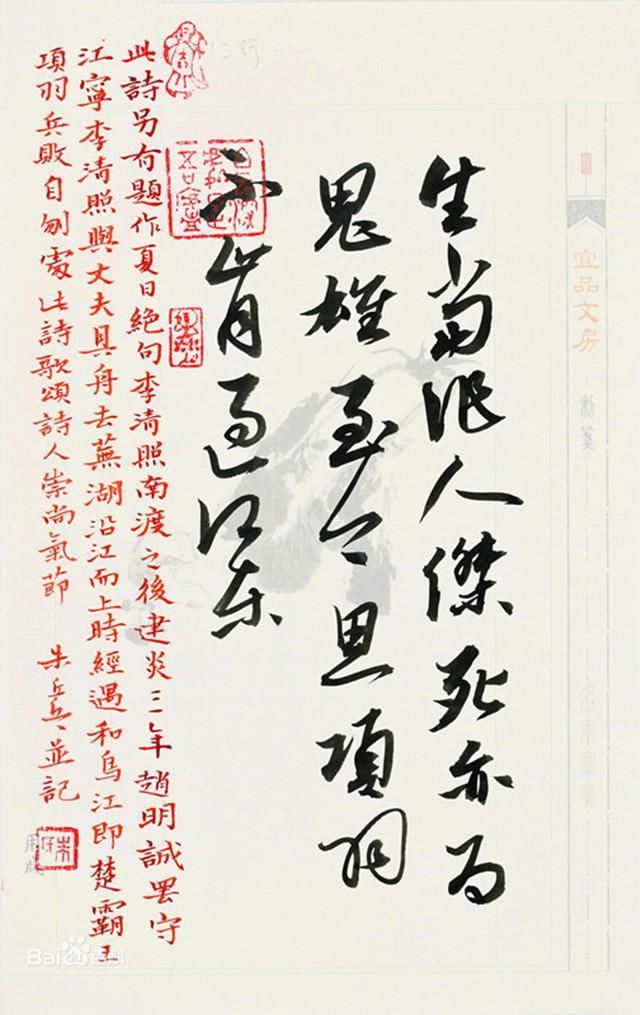 宜品文房
生當作人傑死亦為
鬼雄至今思項羽
不肯過江東
此詩另有題作夏日絕句李清照南渡之後建炎三年趙明誠罢守
江寧李清照與丈夫具舟去蕪湖沿江而上時經過和烏江即楚霸王
項羽兵敗自刎處此詩歌頌詩人崇尚氣節 朱 並記
Bai百科